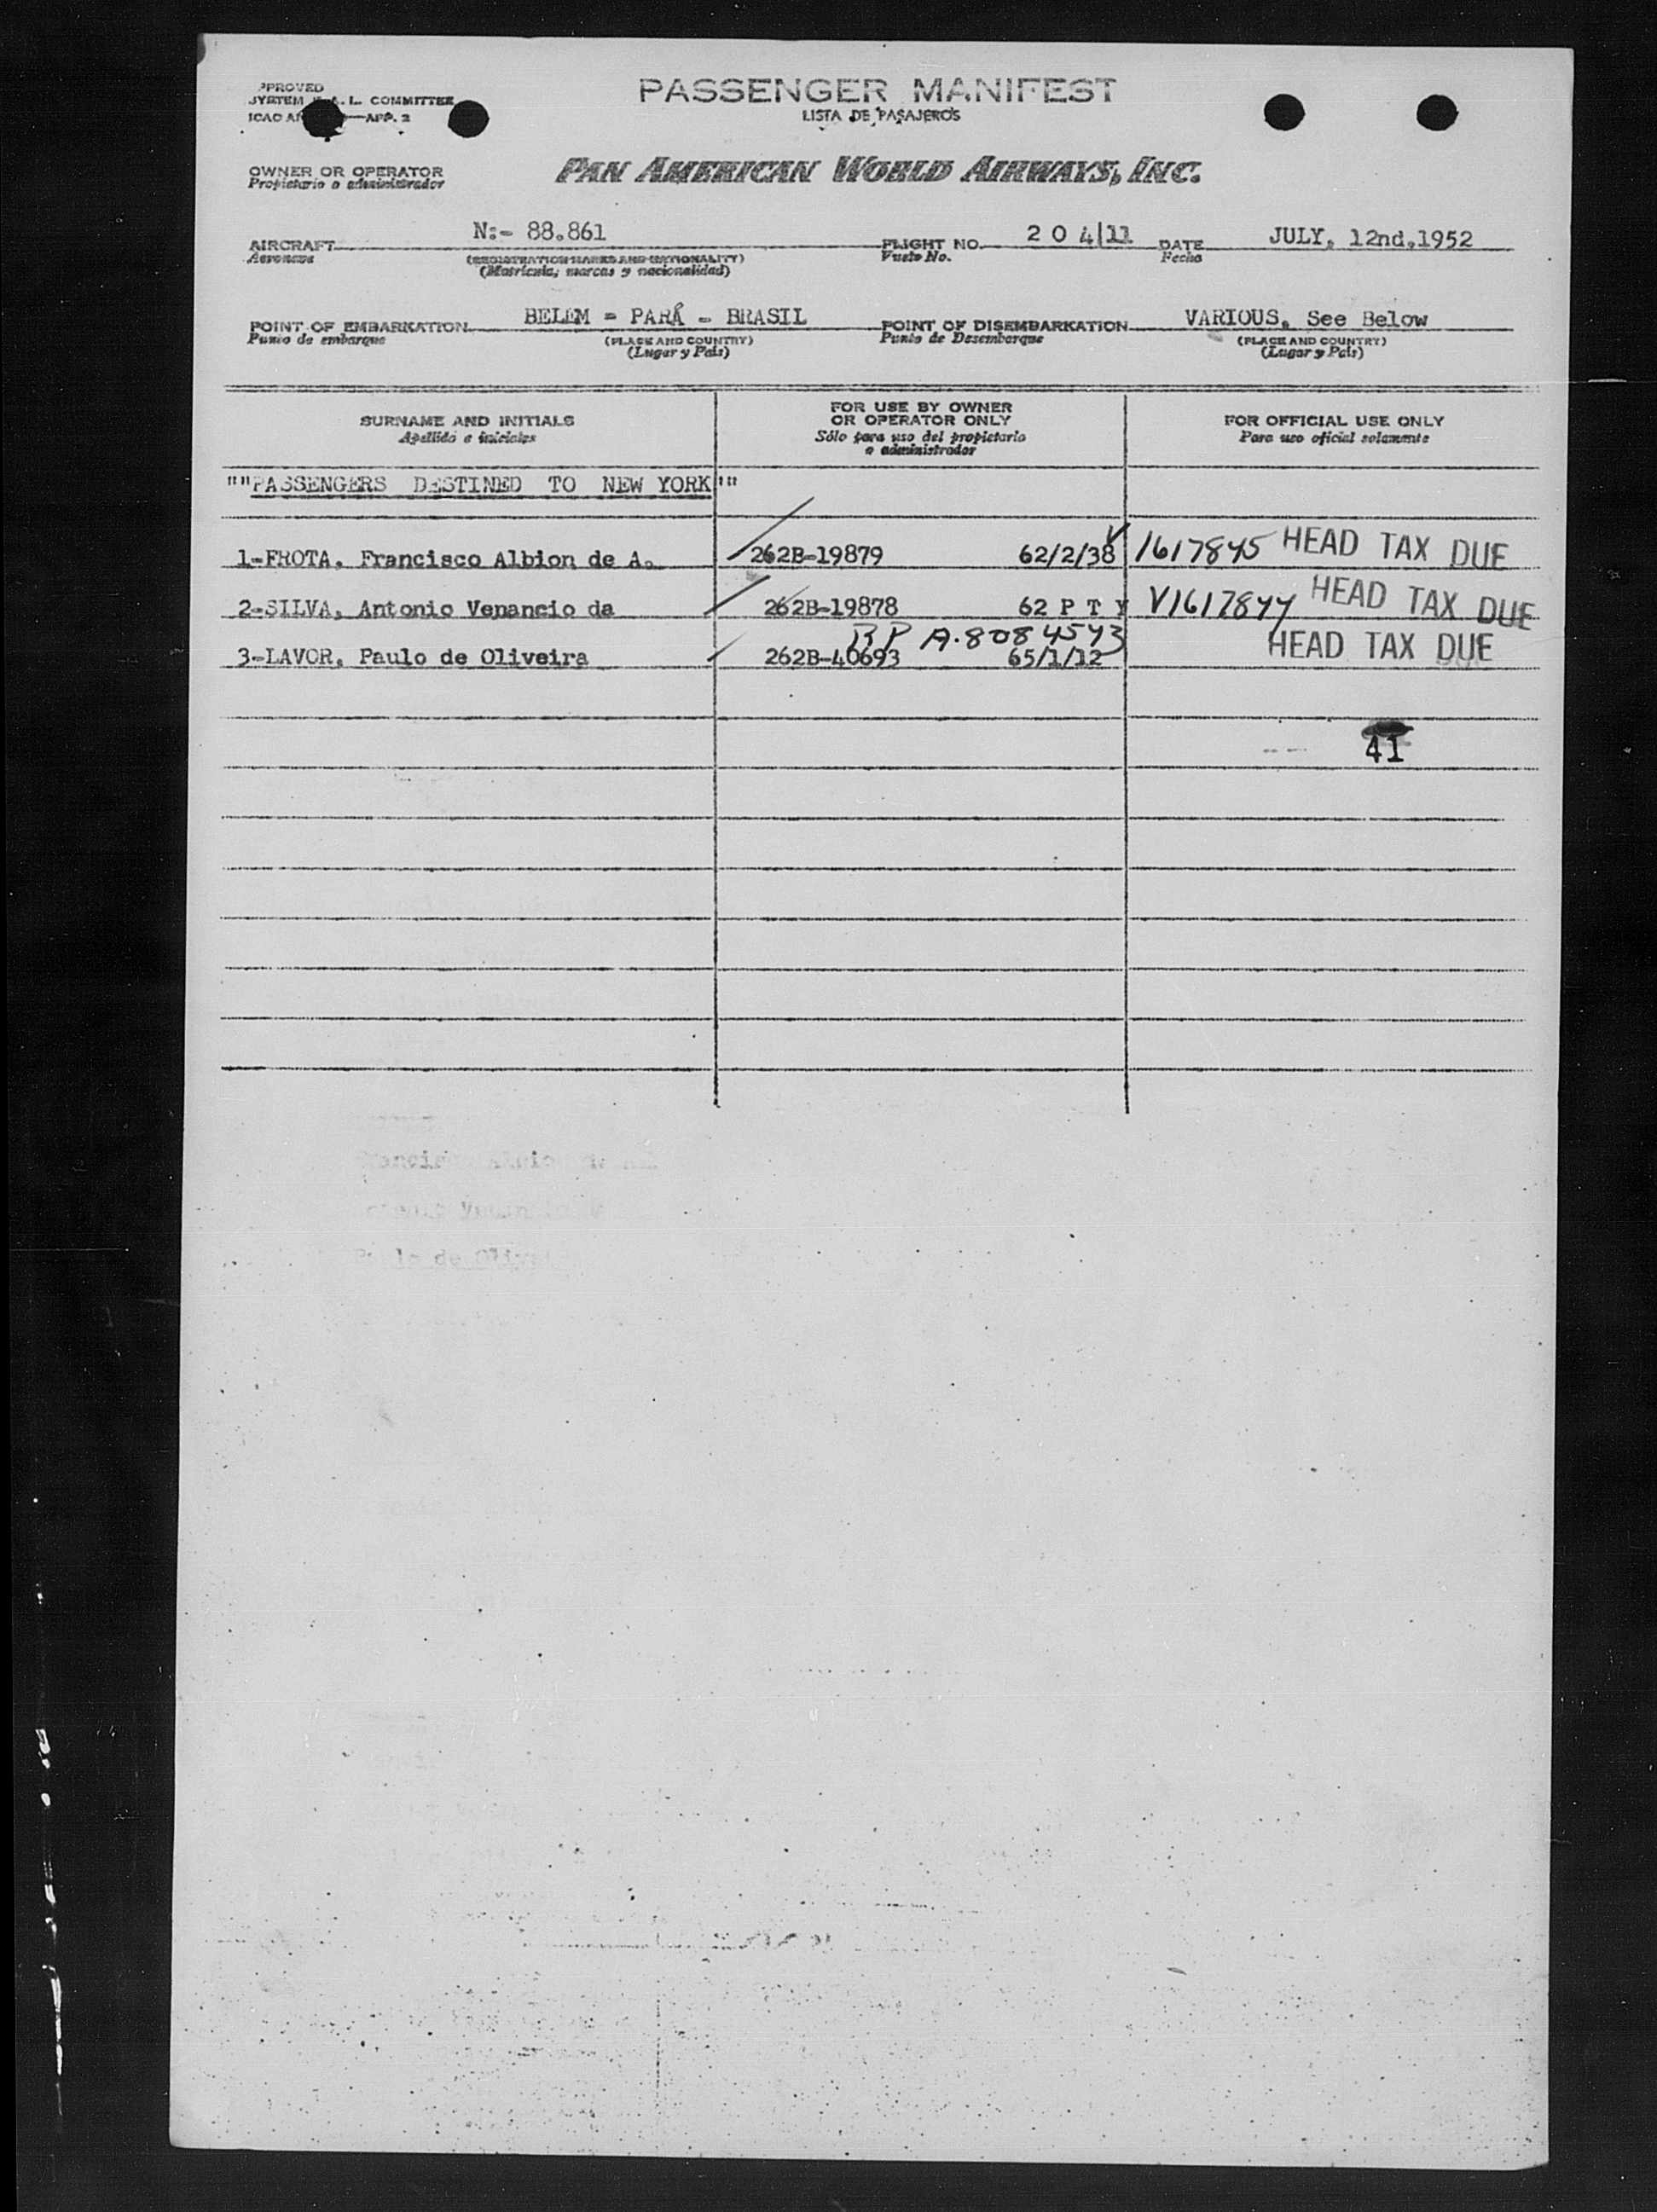 PASSENGER MANIFEST
LISTA DE PASAJEROS
APP. 2
OWNER OR OPERATOR
Propietario o administrador
PAN AMERICAN WORLD AIRWAYS, INC.
AIRCRAFT N:- 88.861 FLIGHT NO. 2 0 4|11 DATE JULY, 12nd,1952
Aeronave (REGISTRATION MARKS AND NATIONALITY) Vuelo No. Fecha
(Matrícula, marcas y nacionalidad)
POINT OF EMBARKATION BELEM - PARÁ - BRASIL POINT OF DISEMBARKATION VARIOUS, See Below
Punto de embarque (PLACE AND COUNTRY) Punto de Desembarque (PLACE AND COUNTRY)
(Lugar y País) (Lugar y País)
SURNAME AND INITIALS
Apellido e iniciales
FOR USE BY OWNER
OR OPERATOR ONLY
Sólo para uso del propietario
o administrador
FOR OFFICIAL USE ONLY
Para uso oficial solamente
""PASSENGERS DESTINED TO NEW YORK""
1-FROTA, Francisco Albion de A. 262B-19879 62/2/38 1617845 HEAD TAX DUE
2-SILVA, Antonio Venancio da 262B-19878 62 P T Y V1617844 HEAD TAX DUE
BP A.8084573
3-LAVOR, Paulo de Oliveira 262B-40693 65/1/12 HEAD TAX DUE
41